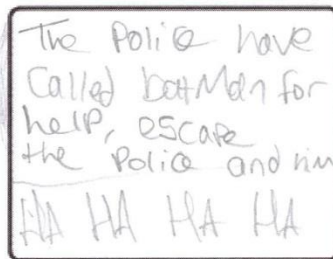 The Police have
Called batMan for
help, escape
the Police and him
HA HA HA HA